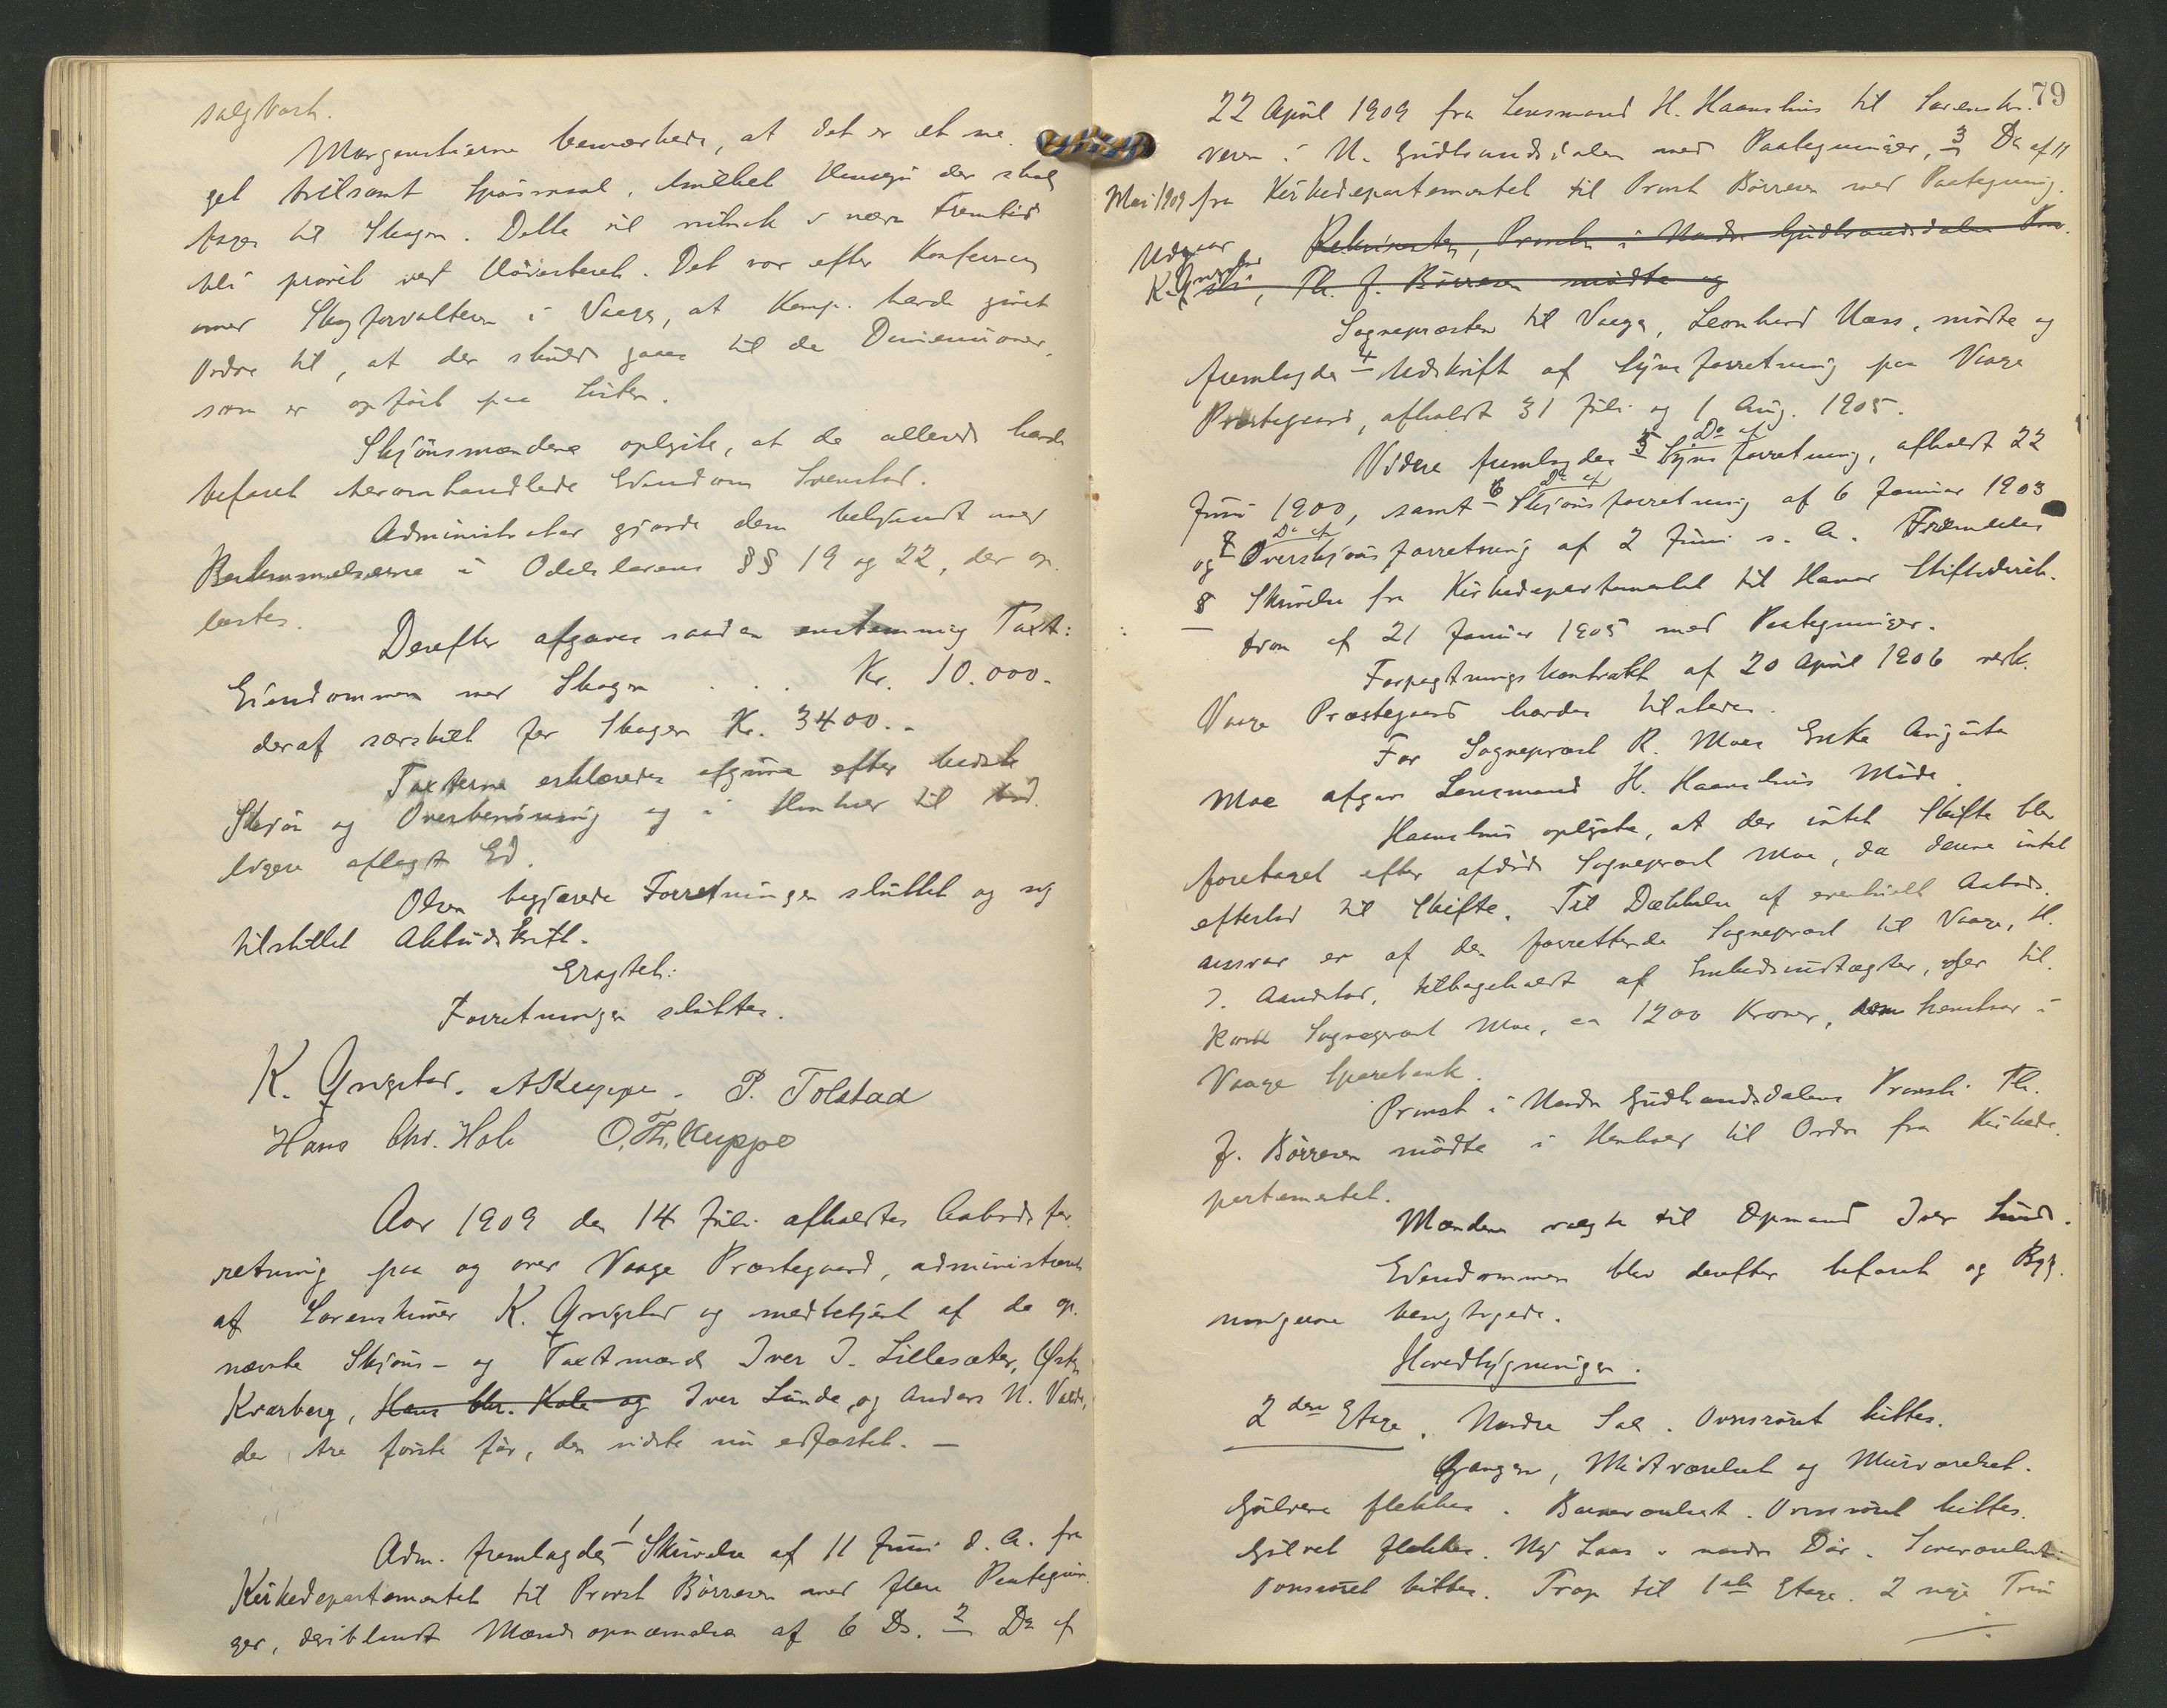 salgbart.
Morgenstierne bemærkede, at det er et me-
get tvilsomt Spørsmaal, hvilket Hensyn der skal
tages til Skogen. Dette vil nemlig i nær Fremtid
bli prøvet ved Høiesteret. Det var efter Konferance
med Skogforvalteren i Vaage, at Komp. havde givet
Ordre til, at der skulde gaaes til de Dimensioner,
som er opført paa Listen.
Skjønsmændene oplyste, at de allerede havde
befaret heromhandlede Eiendom Svenstad.
Administrator gjorde dem bekjendt med
Bestemmelserne i Odelslovens §§ 19 og 22, der op-
læstes.
Derefter afgaves saadan enstemmig Taxt:
Eiendommen med Skogen . . . Kr. 10.000.-
deraf særskilt for Skogen Kr. 3400.-
Taxterne erklæredes afgivne efter bedste
Skjøn og Overbevisning og i Henhold til tid-
ligere aflagt Ed.
Olsen begjærede Forretningen sluttet og sig
tilstillet Aktudskrift.
Eragtet:
Forretningen sluttes.
K. Yngstad. A Kleppe. P. Tolstad
Hans Chr. Hole O. Th. Kleppe
Aar 1909 den 14 Juli afholdtes Aabodsfor-
retning paa og over Vaage Præstegaard, administreret
af Sorenskriver K. Yngstad og medbetjent af de op-
nævnte Skjøns- og Taxtmænd Iver I. Lillesæter, Østen
Kvarberg, Hans Chr. Hole og Iver Lunde, og Anders N. Valde,
de tre første før, den sidste nu edfæstet. —
Adm. fremlagdes 1 Skrivelse af 11 Juni d. A. fra
Kirkedepartementet til Provst Børresen med flere Paategnin-
ger, deriblandt Mændsopnævnelse af 6 Ds. 2 Do af
79
22 April 1909 fra Lensmand H. Haanshus til Sorenskri-
veren i N. Gudbrandsdalen med Paategninger, 3 Do af 11
Mai 1909 fra Kirkedepartementet til Provst Børresen med Paategning.
Udgaar Rekvirenten, Provsten i Nordre Gudbrandsdalens Pro-
K. Yngstad vsti, Th. J. Børresen mødte og
Sognepræsten til Vaage, Leonhard Næss, mødte og
fremlagdes 4 Udskrift af Synsforretning paa Vaage
Præstegaard, afholdt 31 Juli og 1 Aug. 1905.
Do af
Videre fremlagdes 5 Synsforretning, afholdt 22
Do af
Juni 1900, samt 6 Skjønsforretning af 6 Januar 1903
Do af
og 7 Overskjønsforretning af 2 Juni s. A. Fremdeles
8 Skrivelse fra Kirkedepartementet til Hamar Stiftsdirek-
tion af 21 Januar 1905 med Paategninger.
Forpagtningskontrakt af 20 April 1906 vedk.
Vaage Præstegaard havdes tilstede.
For Sognepræst R. Moes Enke Augusta
Moe afgav Lensmand H. Haanshus Møde.
Haanshus oplyste, at der intet Skifte blev
foretaget efter afdøde Sognepræst Moe, da denne intet
efterlod til Skifte. Til Dækkelse af eventuelt Aabods-
ansvar er af den forrettende Sognepræst til Vaage, H.
J. Aandstad, tilbageholdt af Embedsindtægter, der til-
kom Sognepræst Moe, ca 1200 Kroner, som henstaar i
Vaage Sparebank.
Provst i Nordre Gudbrandsdalens Provsti Th.
J. Børresen mødte i Henhold til Ordre fra Kirkede-
partementet.
Mændene valgte til Opmand Iver Lunde.
Eiendommen blev derefter befaret og Byg-
ningerne besigtigede.
Hovedbygningen.
2den Etage. Nordre Sal. Ovnsrøret kittes.
Gangen, Midtværelset og Murværelset.
Gulvene flekkes. Barneværelset. Ovnsrøret kittes.
Gulvet flekkes. Ny Laas i nordre Dør. Soveværelset:
Ovnsrøret kittes. Trap til 1ste Etage. 2 nye Trin